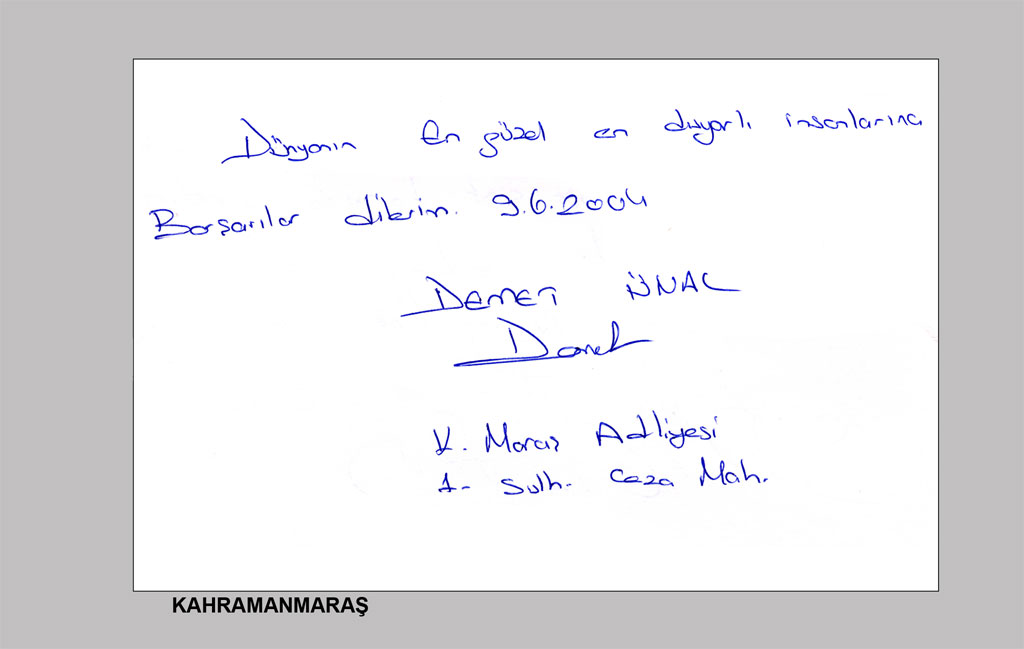 Dünyanın En güzel en duyarlı insanlarına
Barşarılar dilerim. 9.6.2004
DEMET ÜNAL
Demet
K. Maraş Adliyesi
1- Sulh. Ceza Mah.
KAHRAMANMARAŞ